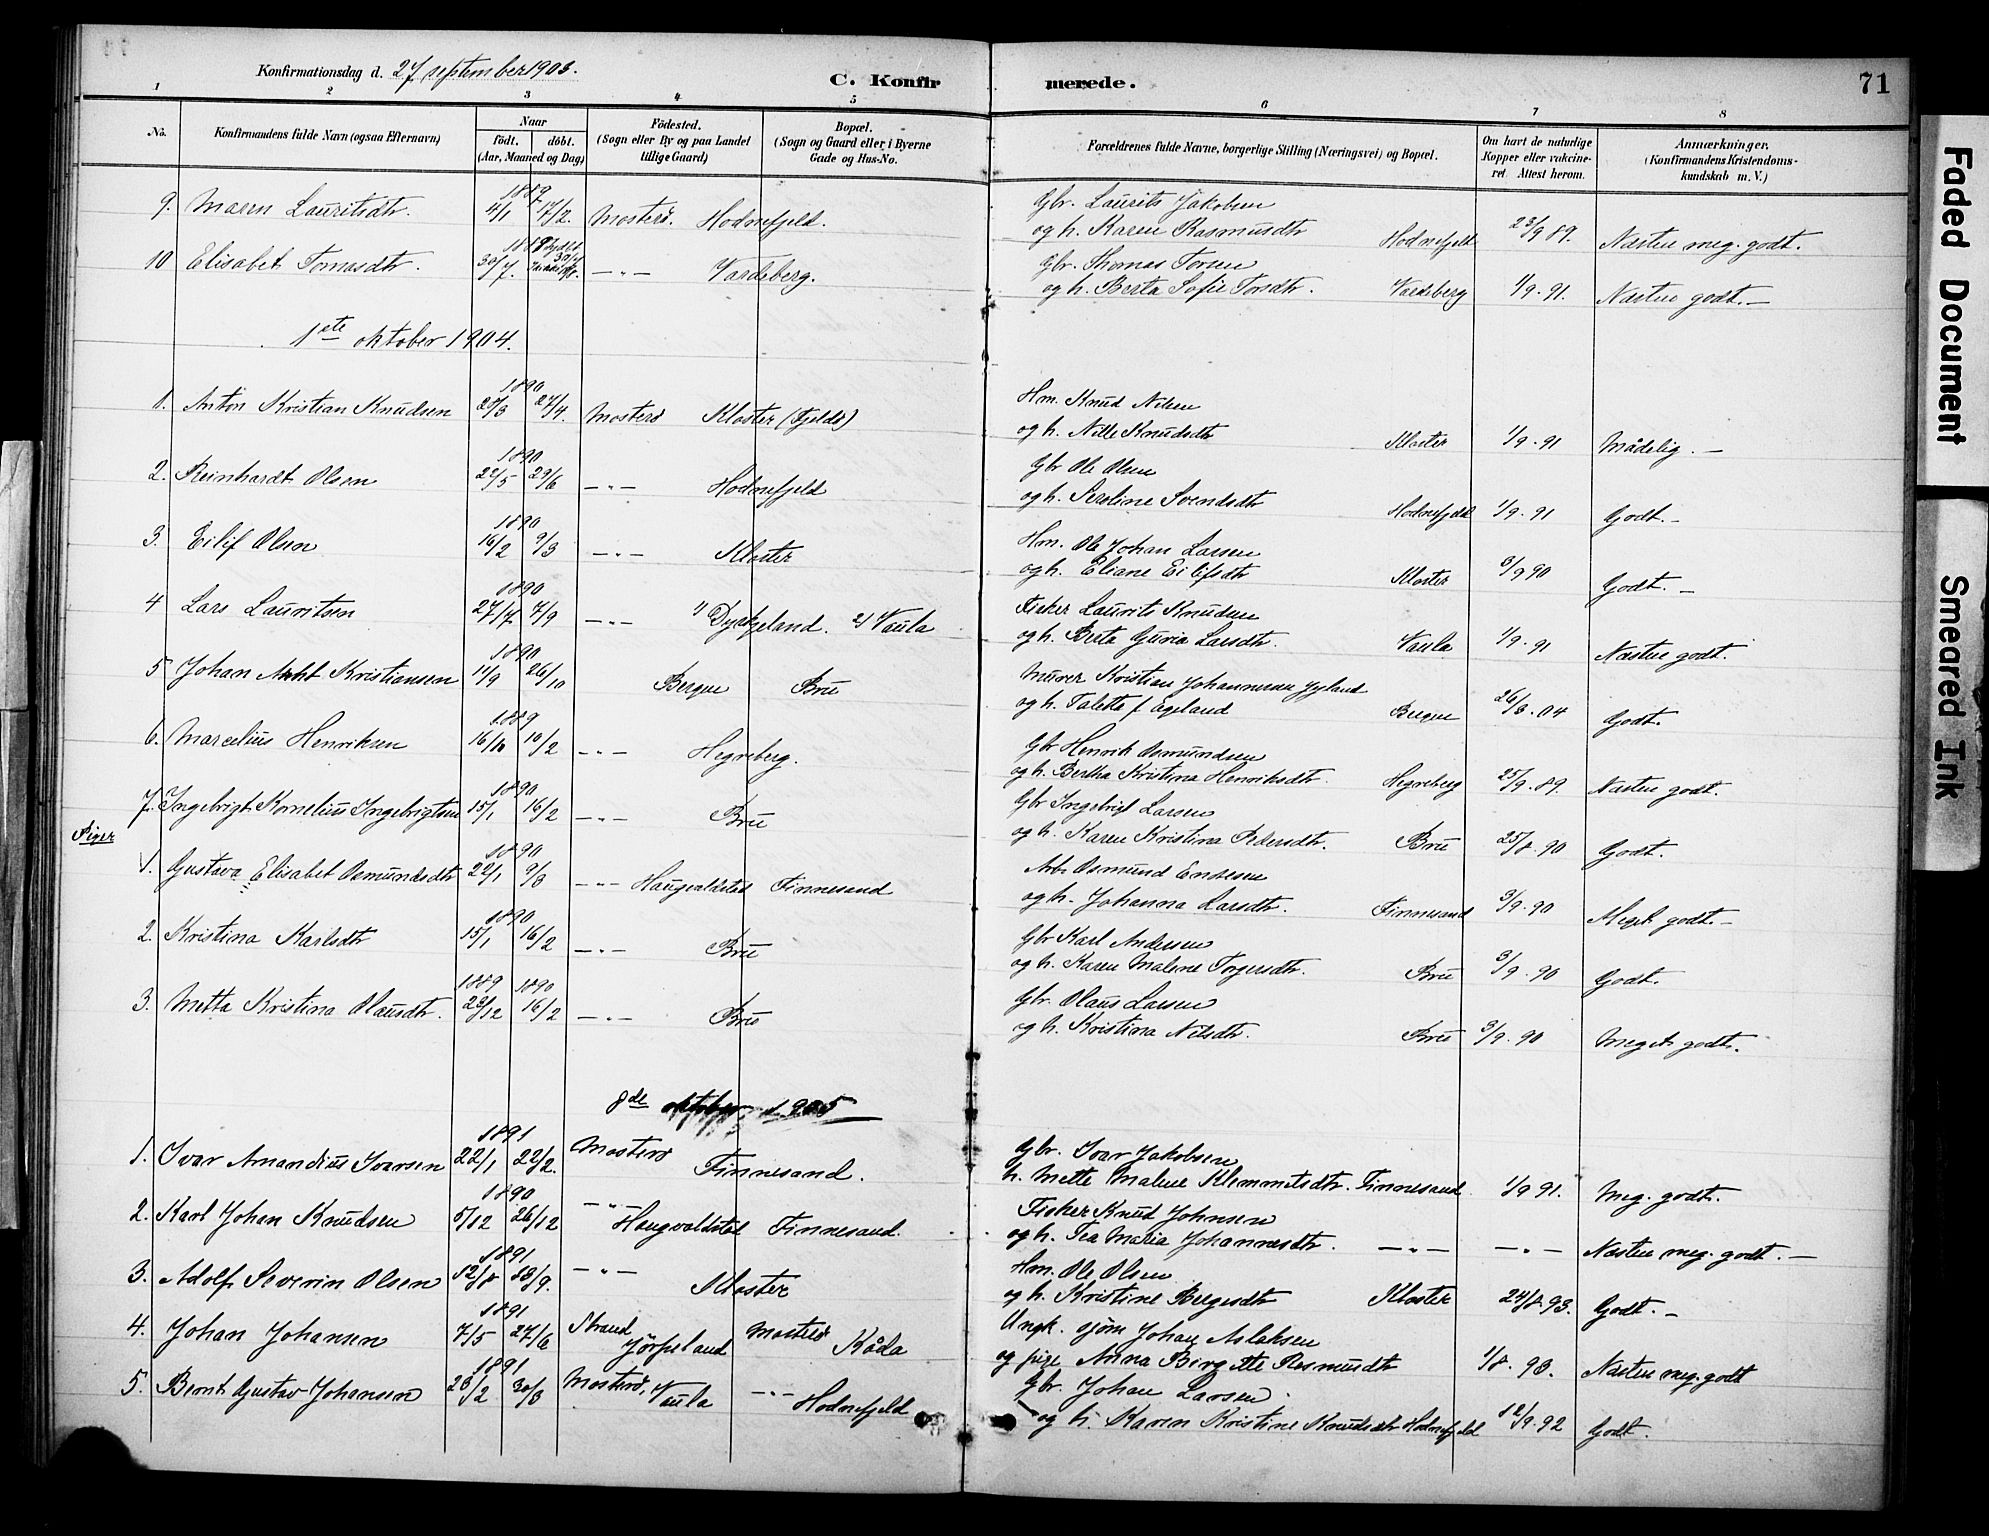 Konfirmationsdag d. 27 september 1903.
C. Konfirmerede.
71
1 2 3 4 5 6 7 8
No.
Konfirmandens fulde Navn (ogsaa Efternavn)
Naar
födt. döbt.
(Aar, Maaned og Dag)
Födested.
(Sogn eller By og paa Landet
tillige Gaard)
Bopæl.
(Sogn og Gaard eller i Byerne
Gade og Hus-No.
Forældrenes fulde Navne, borgerlige Stilling (Næringsvei) og Bopæl.
Om havt de naturlige
Kopper eller vakcine-
ret. Attest herom.
Anmærkninger.
(Konfirmandens Kristendoms-
kundskab m. V.)
1889
9. Maren Lauritsdtr. 4/1 17/2. Mosterö. Hodnefjeld. Gbr. Laurits Jakobsen
og h. Karen Rasmusdtr Hodnefjeld 23/9 89. Næsten meg. godt.
1888
10 Elisabet Tomasdtr. 30/7. —"— Vardeberg. Gbr. Thomas Torsen
og h. Berta Sofie Torsdtr. Vardeberg 1/9. 91. Næsten godt. —
1ste oktober 1904.
1890
1. Anton Kristian Knudsen 28/3 27/4. Mosterö Kloster (Fjeldö) Hm. Knud Nilsen
og h. Nille Knudsdtr Kloster 1/9. 91 Mådelig. —
1890
2. Reinhardt Olsen 22/5 29/6 —"— Hodnefjeld Gbr Ole Olsen
og h. Seroline Svendsdtr Hodnefjeld 1/9. 91 Godt. —
1890
3. Eilif Olsen 16/2 9/3 —"— Kloster Hm. Ole Johan Larsen
og h. Eliane Eilifsdtr Kloster 3/9 90 Godt. —
1890
4 Lars Lauritsen 27/7. 7/9 —"— 1) Dyskjeland. 2) Vaula Fisker Laurits Knudsen
og h. Berta Guria Larsdtr. Vaula 1/9. 91 Næsten godt.
1890
5 Johan Kristiansen 11/9 26/10 Bergen Bru Murer Kristian Johannesen Jysland
og h. Talette f. Ageland Bergen 26/8. 04 Godt.
1889
6. Marcelius Henriksen 16/10 10/2 —"— Hegreberg. Gbr Henrik Osmundsen
og h. Bertha Kristina Henriksdtr. Hegreberg 25/9. 89. Næsten godt.
1890
7. Ingebrigt Kornelius Ingebrigtsen 15/1 16/2 —"— Bru Gbr Ingebrigt Larsen
og h. Karen Kristina Pedersdtr. Bru 25/8. 90 Godt.
Piger
1890
1. Gustava Elisabet Osmundsdtr 22/1 9/3 —"— Haugvaldstad Finnesand Arb. Osmund Endresen
og h. Johanna Larsdtr. Finnesand 3/9. 90 Meget godt. —
1890
2. Kristina Karlsdtr 15/1 16/2 —"— Bru Gbr Karl Andersen
og h. Karen Malene Torgersdtr. Bru 3/9. 90 Godt.
1889 1890
3. Metta Kristina Olausdtr. 23/12 16/2 —"— Bru Gbr. Olaus Larsen
og h. Kristina Nilsdtr. Bru 3/9. 90 Meget godt.
8de oktober 1905
1891
1. Ivar Amandius Ivarsen 22/1 22/2. Mosterö Finnesand. Gbr. Ivar Jakobsen
h. Mette Malene Klemmetsdtr. Finnesand 1/9 91. Meg. godt.
1890
2. Karl Johan Knudsen 5/12 26/12 —"— Haugvaldstad Finnesand. Fisker Knud Johnsen
og h. Tea Maria Johannesdtr. —"— —"— Næsten meg. godt. —
1891
3. Adolf Severin Olsen 12/8 13/9. —"— Kloster Hm. Ole Olsen
og h. Kristine Bergesdtr Kloster 24/8. 93. Godt. —
1891
4. Johan Johansen 7/5 27/6 Strand Jörpeland Mosterö Kåda Ungk. sjöm Johan Aslaksen
og pige Anna Birgitte Rasmusdtr 1/8. 93. Næsten meg. godt
1891
5. Bernt Gustav Johansen 23/2 30/3 Mosterö, Vaula —"— Hodnefjeld Gbr. Johan Larsen.
og h. Karen Kristine Knudsdtr Hodnefjeld 12/9. 92 Godt.
Faded Document
Smeared Ink